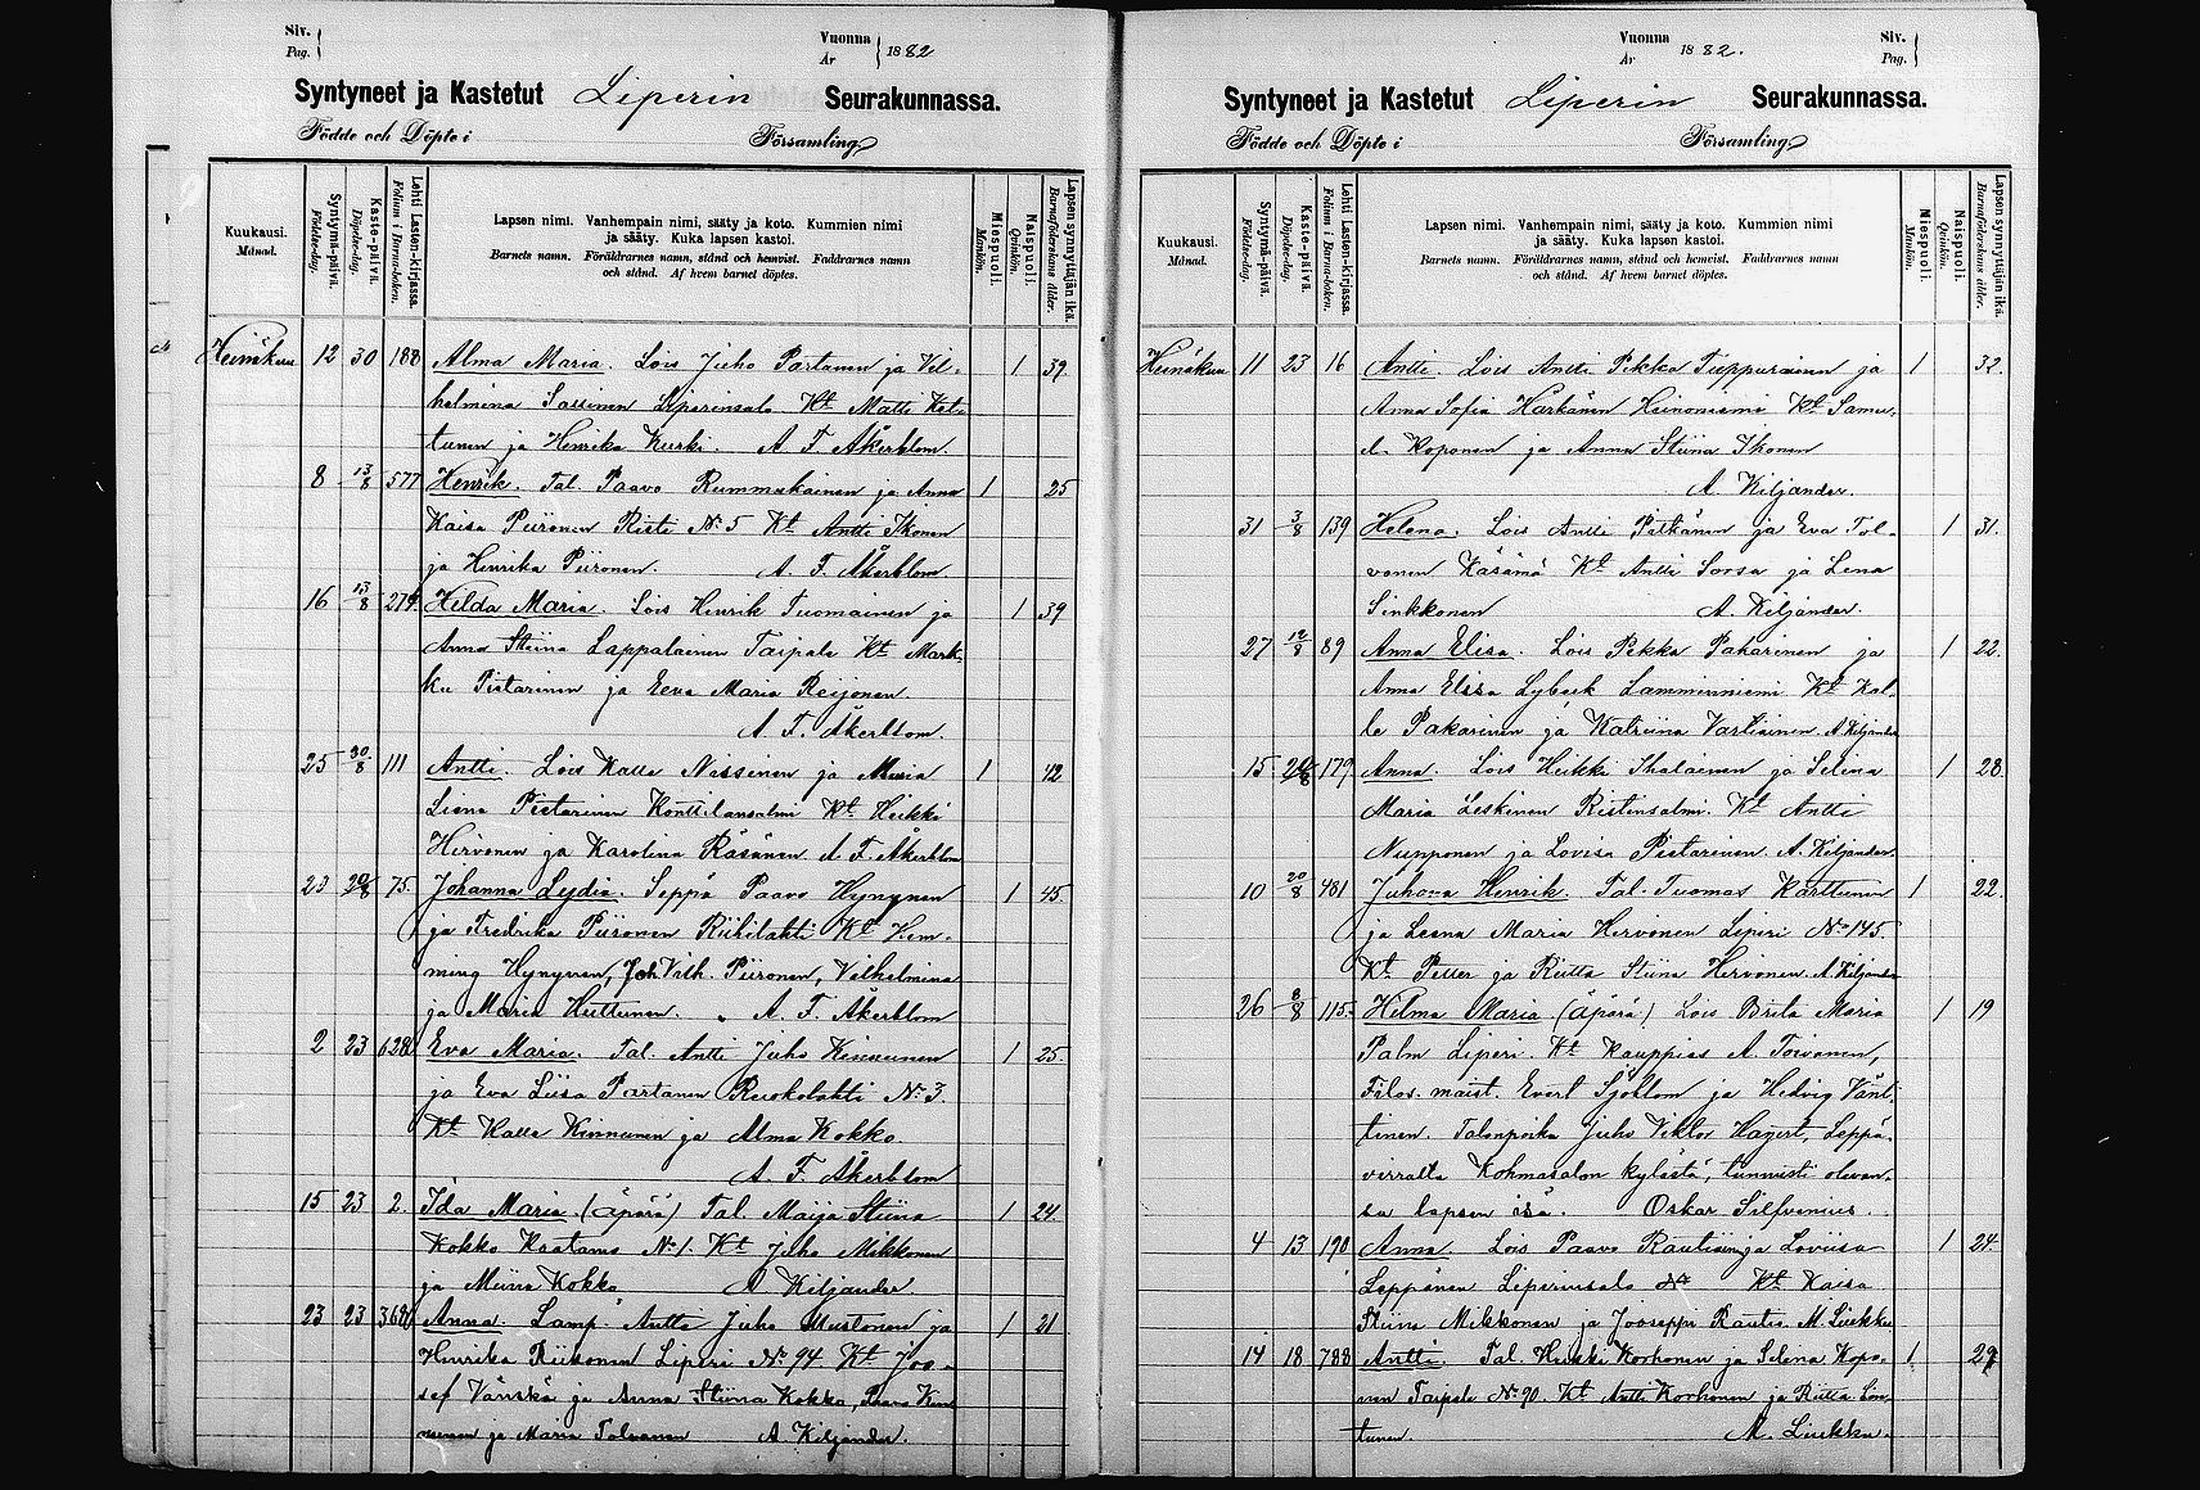 Siv.
Pag.
Vuonna
År
1882
Syntyneet ja Kastetut Liperin Seurakunnassa.
Födde och Döpte i Församling
Kuukausi.
Månad.
Syntymä-päivä.
Födelse-dag.
Kaste-päivä.
Döpelse-dag.
Lehti Lasten-kirjassa.
Folium i Barna-boken.
Lapsen nimi. Vanhempain nimi, sääty ja koto. Kummien nimi
ja sääty. Kuka lapsen kastoi.
Barnets namn. Föräldrarnes namn, stånd och hemvist. Faddrarnes namn
och stånd. Af hvem barnet döptes.
Miespuoli.
Mankön.
Naispuoli.
Qvinkön.
Lapsen synnyttäjän ikä.
Barnaföderskans ålder.
Heinäkuu 12 30 188 Alma Maria. Lois Juho Partanen ja Vil- 1 39.
helmina Sallinen Liperinsalo Kt Matti Ket-
tunen ja Henrika Kurki. A. F. Åkerblom.
8 13/8 577 Henrik. Tal. Paavo Rummukainen ja Anna 1 25
Kaisa Piironen Riste No 5 Kt Antti Ikonen
ja Henrika Piironen. A. F. Åkerblom.
16 13/8 279. Hilda Maria. Lois Henrik Tuomainen ja 1 39
Anna Stiina Lappalainen Taipale Kt Mark-
ku Pistarinen ja Eeva Maria Reijonen.
A. F. Åkerblom.
25 30/8 111 Antti. Lois Kalle Nissinen ja Maria 1 42
Liena Pistarinen Konttilansalmi Kt Heikki
Hirvonen ja Karolina Räsänen A. F. Åkerblom
23 20/8 75. Johanna Lydia. Seppä Paavo Hynynen 1 45.
ja Fredrika Piironen Riihilahti Kt Hem-
ming Hynynen, Joh. Vilh. Piironen, Vilhelmina
ja Maria Huttunen. A. F. Åkerblom
2 23 628 Eva Maria. Tal. Antti Juho Kinnunen 1 25.
ja Eva Liisa Partanen Ruokolahti No 3.
Kt Kalle Kinnunen ja Alma Kokko.
A. F. Åkerblom
15 23 2. Ida Maria. (äpärä) Tal. Maija Stiina 1 24.
Kokko Kaatamo No 1. Kt Juho Mikkonen
ja Miina Kokko A. Kiljander.
23 23 368 Anna. Lamp. Antti Juho Mustonen ja 1 21
Henrika Riikonen Liperi No 94 Kt Joo-
sef Vänskä ja Anna Stiina Kokko, Paavo Kin-
nunen ja Maria Tolvanen A. Kiljander.
Vuonna
År
1882.
Siv.
Pag.
Syntyneet ja Kastetut Liperin Seurakunnassa.
Födde och Döpte i Församling
Kuukausi.
Månad.
Syntymä-päivä.
Födelse-dag.
Kaste-päivä.
Döpelse-dag.
Lehti Lasten-kirjassa.
Folium i Barna-boken.
Lapsen nimi. Vanhempain nimi, sääty ja koto. Kummien nimi
ja sääty. Kuka lapsen kastoi.
Barnets namn. Föräldrarnes namn, stånd och hemvist. Faddrarnes namn
och stånd. Af hvem barnet döptes.
Miespuoli.
Mankön.
Naispuoli.
Qvinkön.
Lapsen synnyttäjän ikä.
Barnaföderskans ålder.
Heinäkuu 11 23 16 Antti. Lois Antti Pekka Tieppurainen ja 1 32.
Anna Sofia Härkänen Heinoniemi Kt Samu-
el Koponen ja Anna Stiina Ikonen
A. Kiljander.
31 3/8 139 Helena. Lois Antti Pitkänen ja Eva Tol- 1 31.
vonen Käsämä Kt Antti Sorsa ja Lena
Sinkkonen A. Kiljander.
27 12/8 89 Anna Elisa. Lois Pekka Pakarinen ja 1 22.
Anna Elisa Lyback Lamminniemi Kt Kal-
le Pakarinen ja Katriina Vartiainen. A. Kiljander
15 179 Anna. Lois Heikki Ihalainen ja Selina 1 28.
Maria Leskinen Ristinsalmi. Kt Antti
Nupponen ja Lovisa Pistarinen. A. Kiljander.
10 20/8 481 Juhana Henrik. Tal. Tuomas Karttunen 1 22.
ja Leena Maria Hirvonen Liperi No 145.
Kt Petter ja Riitta Stiina Hirvonen. A. Kiljander
26 8/8 115. Hilma Maria. (äpärä) Lois Brita Maria 1 19
Palm Liperi. Kt Kauppias A. Toivanen,
Filos. maist. Evert Sjöblom ja Hedvig Vänt-
tinen. Talonpoika Juho Viktor Hagert, Leppä-
virralta Kohmasalon kylästä, tunnusti olevan-
sa lapsen isä. Oskar Silfvenius.
4 13 190 Anna. Lois Paavo Rautiainen ja Loviisa 1 24.
Leppänen Liperinsalo Kt Kaisa
Stiina Mikkonen ja Jooseppi Rautio. M. Liukku
14 18 788 Antti. Tal. Heikki Korhonen ja Selina Kopo- 1
nen Taipale No 90. Kt Antti Korhonen ja Riitta Lön-
tunen. M. Liukku.